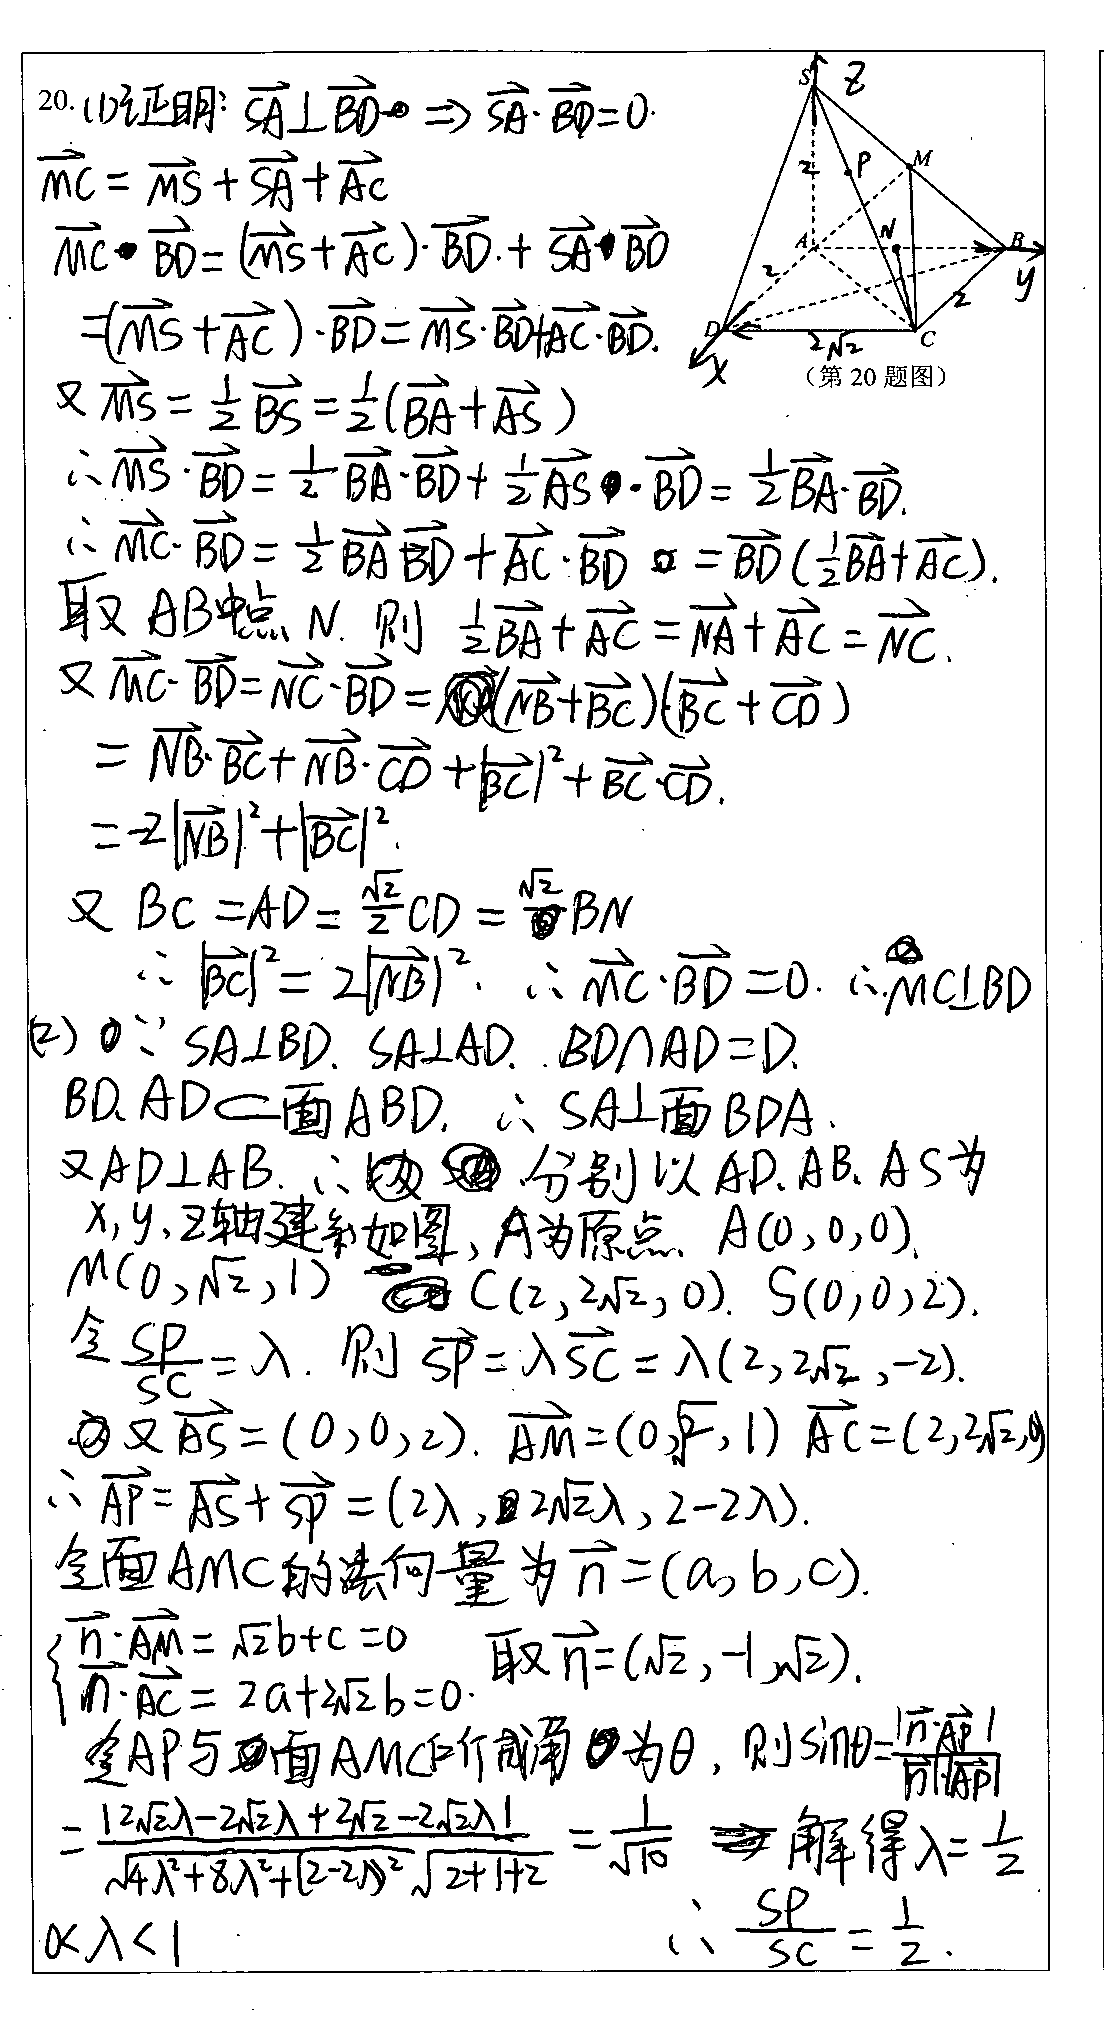 20. (1)证明: $\overrightarrow{SA}\perp\overrightarrow{BD}$ ⇒ $\overrightarrow{SA}\cdot\overrightarrow{BD}=0$.
$\overrightarrow{MC}=\overrightarrow{MS}+\overrightarrow{SA}+\overrightarrow{AC}$
$\overrightarrow{MC}\cdot\overrightarrow{BD}=(\overrightarrow{MS}+\overrightarrow{AC})\cdot\overrightarrow{BD}+\overrightarrow{SA}\cdot\overrightarrow{BD}$
$=(\overrightarrow{MS}+\overrightarrow{AC})\cdot\overrightarrow{BD}=\overrightarrow{MS}\cdot\overrightarrow{BD}+\overrightarrow{AC}\cdot\overrightarrow{BD}$.
又 $\overrightarrow{MS}=\frac{1}{2}\overrightarrow{BS}=\frac{1}{2}(\overrightarrow{BA}+\overrightarrow{AS})$
∴ $\overrightarrow{MS}\cdot\overrightarrow{BD}=\frac{1}{2}\overrightarrow{BA}\cdot\overrightarrow{BD}+\frac{1}{2}\overrightarrow{AS}\cdot\overrightarrow{BD}=\frac{1}{2}\overrightarrow{BA}\cdot\overrightarrow{BD}$.
∴ $\overrightarrow{MC}\cdot\overrightarrow{BD}=\frac{1}{2}\overrightarrow{BA}\,\overrightarrow{BD}+\overrightarrow{AC}\cdot\overrightarrow{BD}=\overrightarrow{BD}(\frac{1}{2}\overrightarrow{BA}+\overrightarrow{AC})$.
取AB中点N. 则 $\frac{1}{2}\overrightarrow{BA}+\overrightarrow{AC}=\overrightarrow{NA}+\overrightarrow{AC}=\overrightarrow{NC}$.
又 $\overrightarrow{MC}\cdot\overrightarrow{BD}=\overrightarrow{NC}\cdot\overrightarrow{BD}=(\overrightarrow{NB}+\overrightarrow{BC})(\overrightarrow{BC}+\overrightarrow{CD})$
$=\overrightarrow{NB}\cdot\overrightarrow{BC}+\overrightarrow{NB}\cdot\overrightarrow{CD}+|\overrightarrow{BC}|^2+\overrightarrow{BC}\cdot\overrightarrow{CD}$.
$=-2|\overrightarrow{NB}|^2+|\overrightarrow{BC}|^2$.
又 $BC=AD=\frac{\sqrt{2}}{2}CD=\sqrt{2}BN$
∴ $|\overrightarrow{BC}|^2=2|\overrightarrow{NB}|^2$. ∴ $\overrightarrow{MC}\cdot\overrightarrow{BD}=0$. ∴ MC⊥BD
(2) ∵ SA⊥BD. SA⊥AD. BD∩AD=D.
BD、AD⊂面ABD. ∴ SA⊥面BDA.
又AD⊥AB. ∴ 分别以AD、AB、AS为
x, y, z轴建系如图, A为原点、 A(0,0,0).
M(0,√2,1) C(2,2√2,0). S(0,0,2).
令 $\frac{SP}{SC}=λ$. 则 $\overrightarrow{SP}=λ\overrightarrow{SC}=λ(2,2\sqrt{2},-2)$.
又 $\overrightarrow{AS}=(0,0,2)$. $\overrightarrow{AM}=(0,\sqrt{2},1)$ $\overrightarrow{AC}=(2,2\sqrt{2},0)$
∴ $\overrightarrow{AP}=\overrightarrow{AS}+\overrightarrow{SP}=(2λ,2\sqrt{2}λ,2-2λ)$.
令面AMC的法向量为 $\vec{n}=(a,b,c)$.
$\vec{n}\cdot\overrightarrow{AM}=\sqrt{2}b+c=0$ 取 $\vec{n}=(\sqrt{2},-1,\sqrt{2})$.
$\vec{n}\cdot\overrightarrow{AC}=2a+2\sqrt{2}b=0$.
令AP与面AMC所成角为θ, 则 $\sinθ=\frac{|\vec{n}\cdot\overrightarrow{AP}|}{|\vec{n}||\overrightarrow{AP}|}$
$=\frac{|2\sqrt{2}λ-2\sqrt{2}λ+2\sqrt{2}-2\sqrt{2}λ|}{\sqrt{4λ^2+8λ^2+(2-2λ)^2}\sqrt{2+1+2}}=\frac{1}{\sqrt{10}}$ ⇒ 解得 $λ=\frac{1}{2}$
0<λ<1 ∴ $\frac{SP}{SC}=\frac{1}{2}$.
S z
2 P M
A N B
2 y
D 2√2 C 2
x
(第 20 题图)